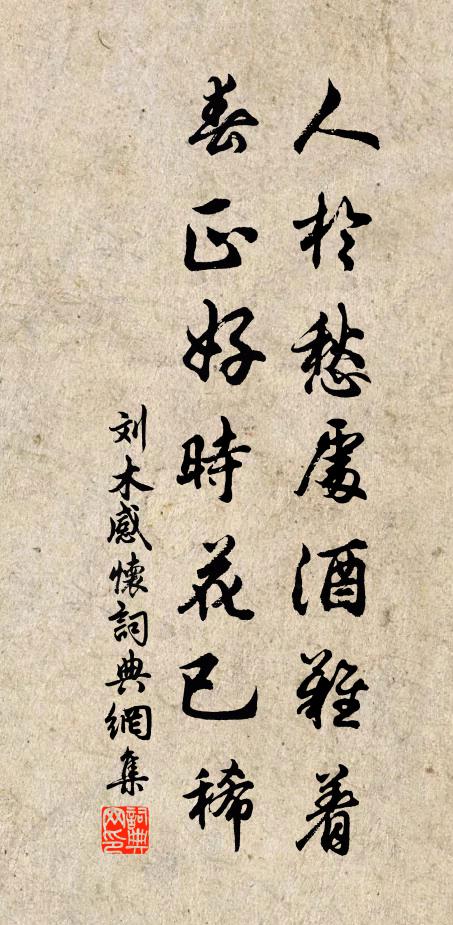 人於愁處酒難着
春正好時花已稀
刘木感懷詞典網集
詞典网印